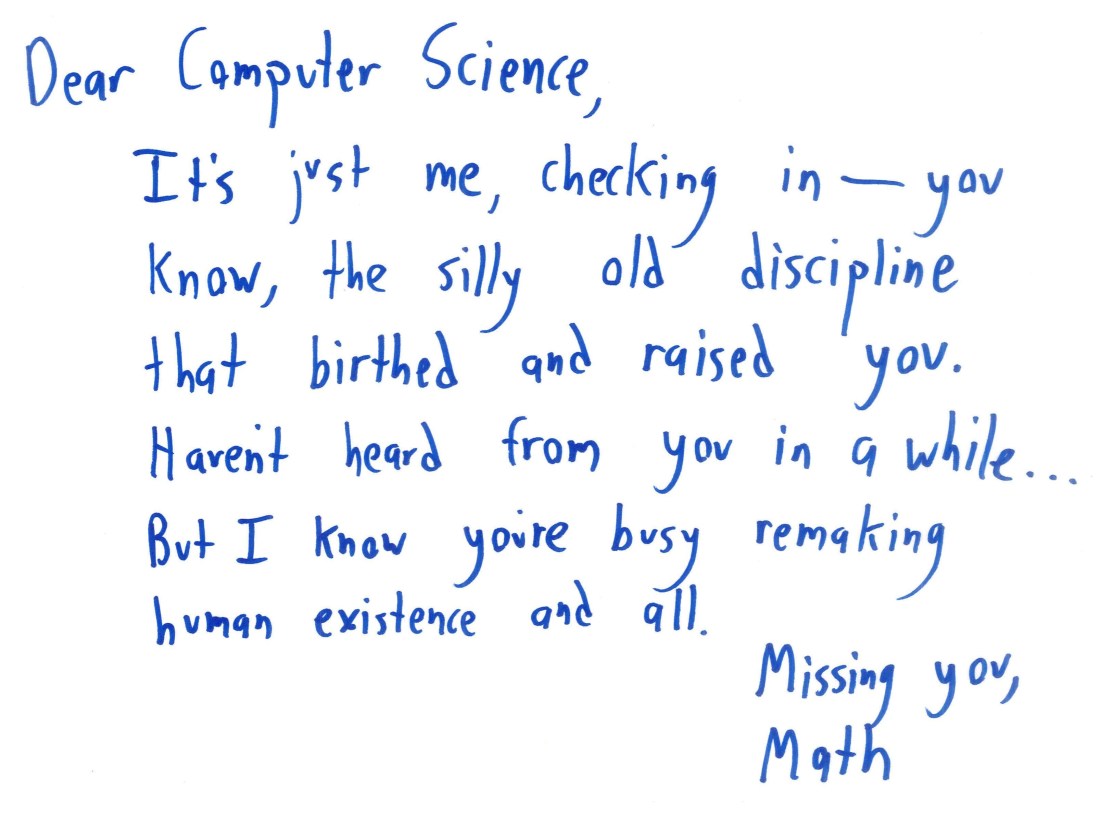 Dear Computer Science,
It's just me, checking in — you
know, the silly old discipline
that birthed and raised you.
Haven't heard from you in a while...
But I know you're busy remaking
human existence and all.
Missing you,
Math